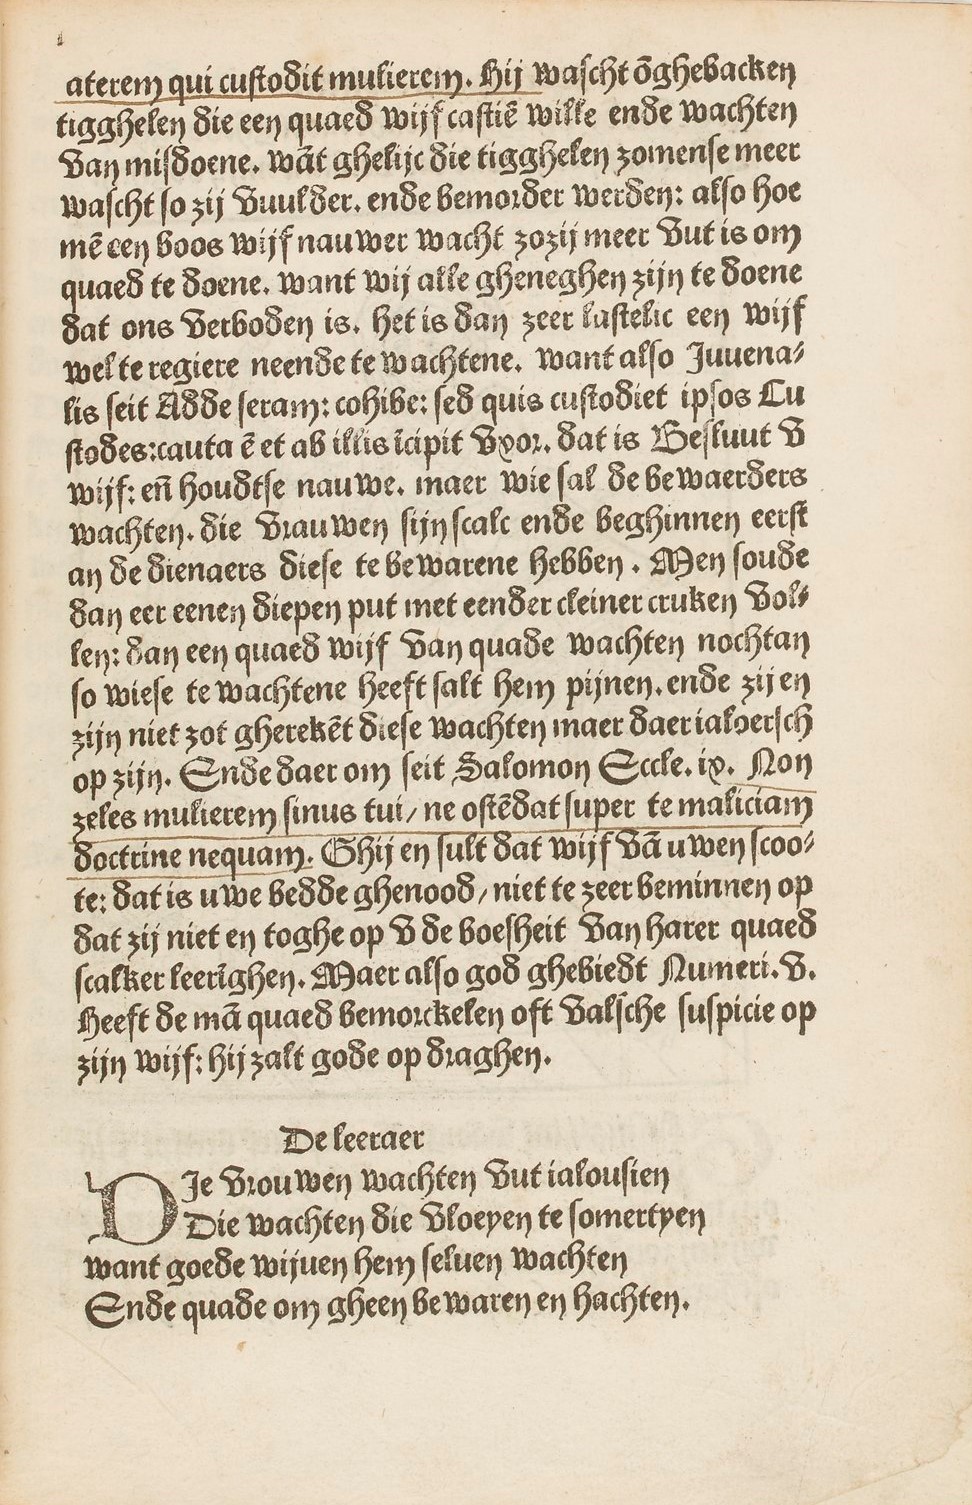 aterem qui custodit mulierem. Hij wascht ōghebacken
tigghelen die een quaed wijf castiē wille ende wachten
van misdoene. wāt ghelijc die tigghelen zomense meer
wascht so zij vuulder. ende bemorder werden: also hoe
mē een boos wijf nauwer wacht zozij meer vut is om
quaed te doene. want wij alle gheneghen zijn te doene
dat ons verboden is. het is dan zeer lastelic een wijf
wel te regiere neende te wachtene. want also Juuena-
lis seit Adde seram: cohibe: sed quis custodiet ipsos Cu
stodes: cauta ē et ab illis īcipit vxor. dat is Besluut v
wijf: en̄ houdtse nauwe. maer wie sal de bewaerders
wachten. die vrauwen sijn scalc ende beghinnen eerst
an de dienaers diese te bewarene hebben. Men soude
dan eer eenen diepen put met eender cleiner cruken vol-
len: dan een quaed wijf van quade wachten nochtan
so wiese te wachtene heeft salt hem pijnen. ende zij en
zijn niet zot gherekēt diese wachten maer daer ialoersch
op zijn. Ende daer om seit Salomon Eccle. ix. Non
zeles mulierem sinus tui/ ne ostēdat super te maliciam
doctrine nequam. Ghij en sult dat wijf vā uwen scoo-
te: dat is uwe bedde ghenood/ niet te zeer beminnen op
dat zij niet en toghe op v de boesheit van harer quaed
scalker leerīghen. Maer also god ghebiedt Numeri. v.
Heeft de mā quaed bemorckelen oft valsche suspicie op
zijn wijf: hij zalt gode op draghen.
De leeraer
DJe vrouwen wachten vut ialousien
Die wachten die vloeyen te somertyen
want goede wijuen hem seluen wachten
Ende quade om gheen bewaren en hachten.